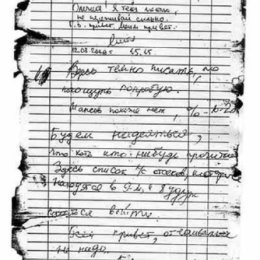 Олечка! Я тебя люблю,
не переживай сильно.
Г.С. привет. Моим привет.
Митя
12.08.2000г. 15.15
Здесь темно писать, но
наощупь попробую.
Шансов похоже нет, %
Будем надеяться,
что хоть кто-нибудь прочитает
Здесь список л/с отсеков, которые
находятся в 9-м и 8
выйти.
Всем привет, отчаиваться
не надо.